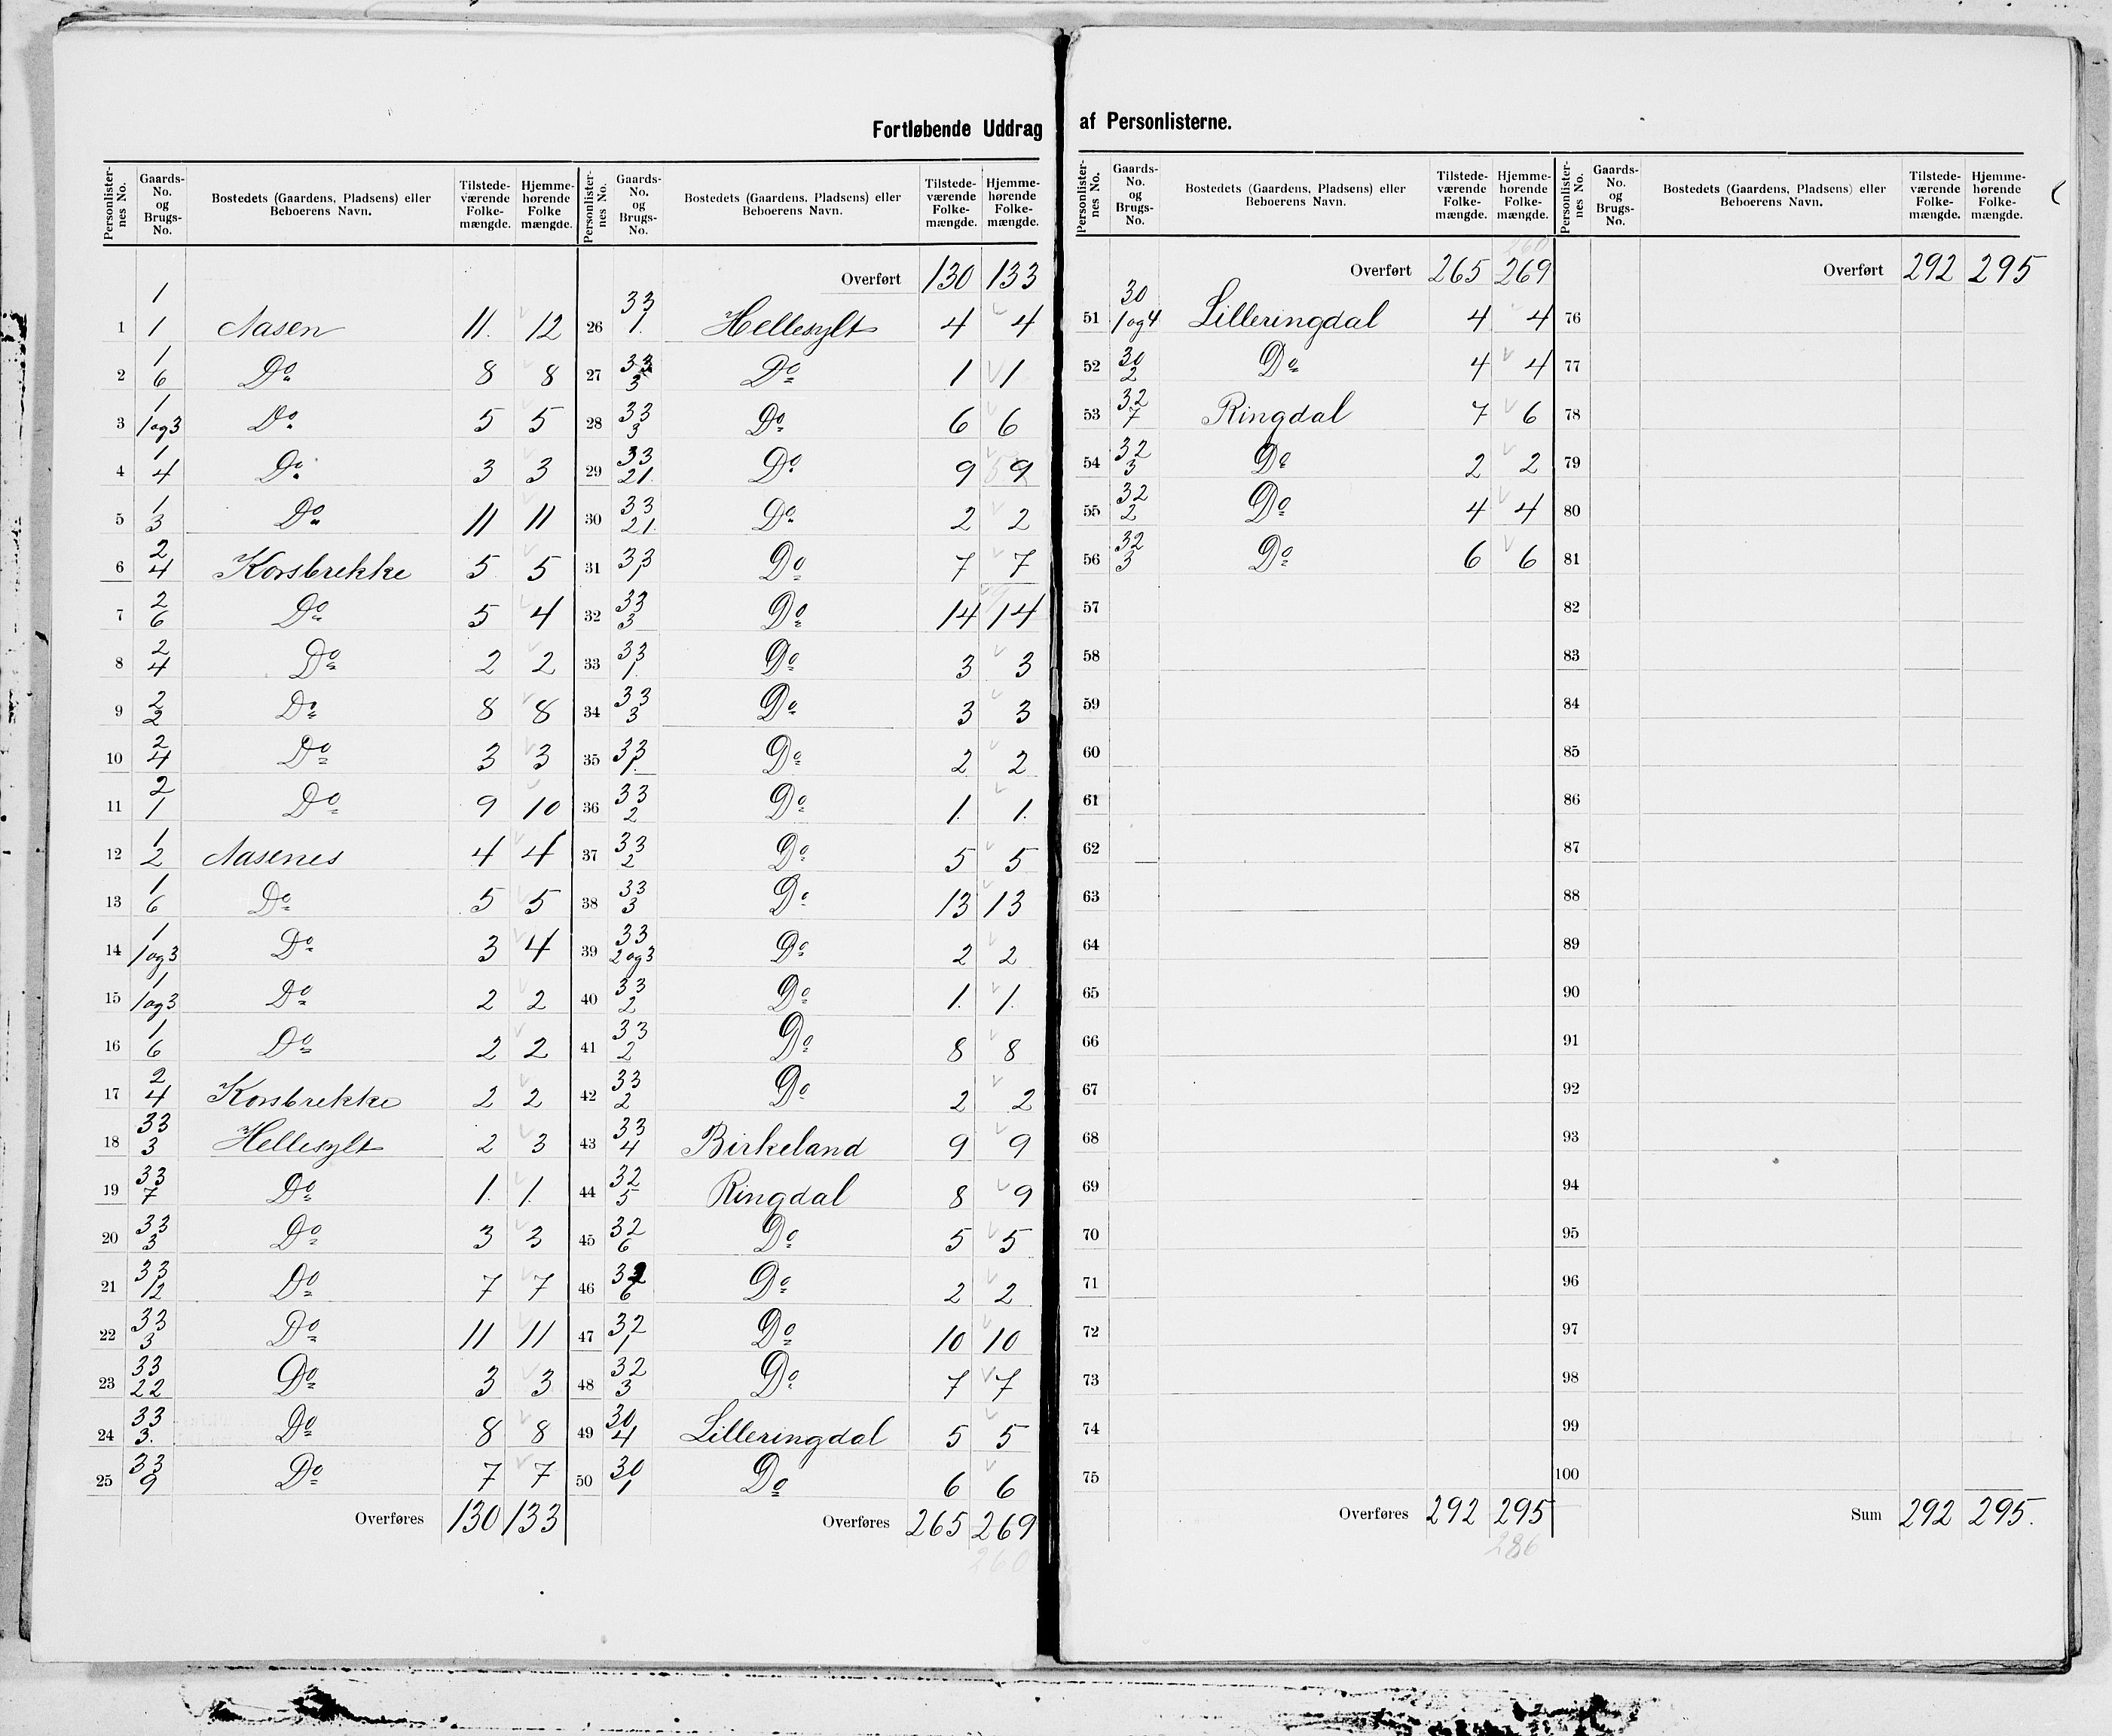 Fortløbende Uddrag af Personlisterne.
Personlister-nes No. | Gaards-No. og Brugs-No. | Bostedets (Gaardens, Pladsens) eller Beboerens Navn. | Tilstede-værende Folke-mængde. | Hjemme-hørende Folke mængde.
1 | 1 / 1 | Aasen | 11. | 12
2 | 1 / 6 | Do | 8 | 8
3 | 1 / 1 og 3 | Do | 5 | 5
4 | 1 / 4 | Do | 3 | 3
5 | 1 / 3 | Do | 11 | 11
6 | 2 / 4 | Korsbrekke | 5 | 5
7 | 2 / 6 | Do | 5 | 4
8 | 2 / 4 | Do | 2 | 2
9 | 2 / 2 | Do | 8 | 8
10 | 2 / 4 | Do | 3 | 3
11 | 2 / 1 | Do | 9 | 10
12 | 1 / 2 | Aasenes | 4 | 4
13 | 1 / 6 | Do | 5 | 5
14 | 1 / 1 og 3 | Do | 3 | 4
15 | 1 / 1 og 3 | Do | 2 | 2
16 | 1 / 6 | Do | 2 | 2
17 | 2 / 4 | Korsbrekke | 2 | 2
18 | 33 / 3 | Hellesylt | 2 | 3
19 | 33 / 7 | Do | 1. | 1.
20 | 33 / 3 | Do | 3 | 3
21 | 33 / 12 | Do | 7 | 7
22 | 33 / 3 | Do | 11 | 11
23 | 33 / 22 | Do | 3 | 3
24 | 33 / 3. | Do | 8 | 8
25 | 33 / 9 | Do | 7 | 7
Overføres | 130 | 133
Personlister-nes No. | Gaards-No. og Brugs-No. | Bostedets (Gaardens, Pladsens) eller Beboerens Navn. | Tilstede-værende Folke-mængde. | Hjemme-hørende Folke-mængde.
Overført | 130 | 133
26 | 33 / 1. | Hellesylt | 4 | 4
27 | 33 / 3 | Do | 1 | 1
28 | 33 / 3 | Do | 6 | 6
29 | 33 / 21. | Do | 9 | 9
30 | 33 / 21. | Do | 2 | 2
31 | 33 / 1 | Do | 7 | 7
32 | 33 / 3 | Do | 14 | 14
33 | 33 / 1. | Do | 3 | 3
34 | 33 / 3 | Do | 3 | 3
35 | 33 / 1. | Do | 2 | 2
36 | 33 / 2 | Do | 1. | 1.
37 | 33 / 2 | Do | 5 | 5
38 | 33 / 3 | Do | 13 | 13
39 | 33 / 2 og 3 | Do | 2 | 2
40 | 33 / 2 | Do | 1. | 1.
41 | 33 / 2 | Do | 8 | 8
42 | 33 / 2 | Do | 2 | 2
43 | 33 / 4 | Birkeland | 9 | 9
44 | 32 / 5 | Ringdal | 8 | 9
45 | 32 / 6 | Do | 5 | 5
46 | 32 / 6 | Do | 2 | 2
47 | 32 / 1 | Do | 10 | 10
48 | 32 / 3 | Do | 7 | 7
49 | 30 / 4 | Lilleringdal | 5 | 5
50 | 30 / 1 | Do | 6 | 6
Overføres | 265 | 269
260
Personlister-nes No. | Gaards-No. og Brugs-No. | Bostedets (Gaardens, Pladsens) eller Beboerens Navn. | Tilstede-værende Folke-mængde. | Hjemme-hørende Folke-mængde.
260
Overført | 265 | 269
51 | 30 / 1 og 4 | Lilleringdal | 4 | 4
52 | 30 / 2 | Do | 4 | 4
53 | 32 / 7 | Ringdal | 7 | 6
54 | 32 / 3 | Do | 2 | 2
55 | 32 / 2 | Do | 4 | 4
56 | 32 / 3 | Do | 6 | 6
57
58
59
60
61
62
63
64
65
66
67
68
69
70
71
72
73
74
75
Overføres | 292 | 295
286
Personlister-nes No. | Gaards-No. og Brugs-No. | Bostedets (Gaardens, Pladsens) eller Beboerens Navn. | Tilstede-værende Folke-mængde. | Hjemme-hørende Folke-mængde.
Overført | 292 | 295
76
77
78
79
80
81
82
83
84
85
86
87
88
89
90
91
92
93
94
95
96
97
98
99
100
Sum | 292 | 295.